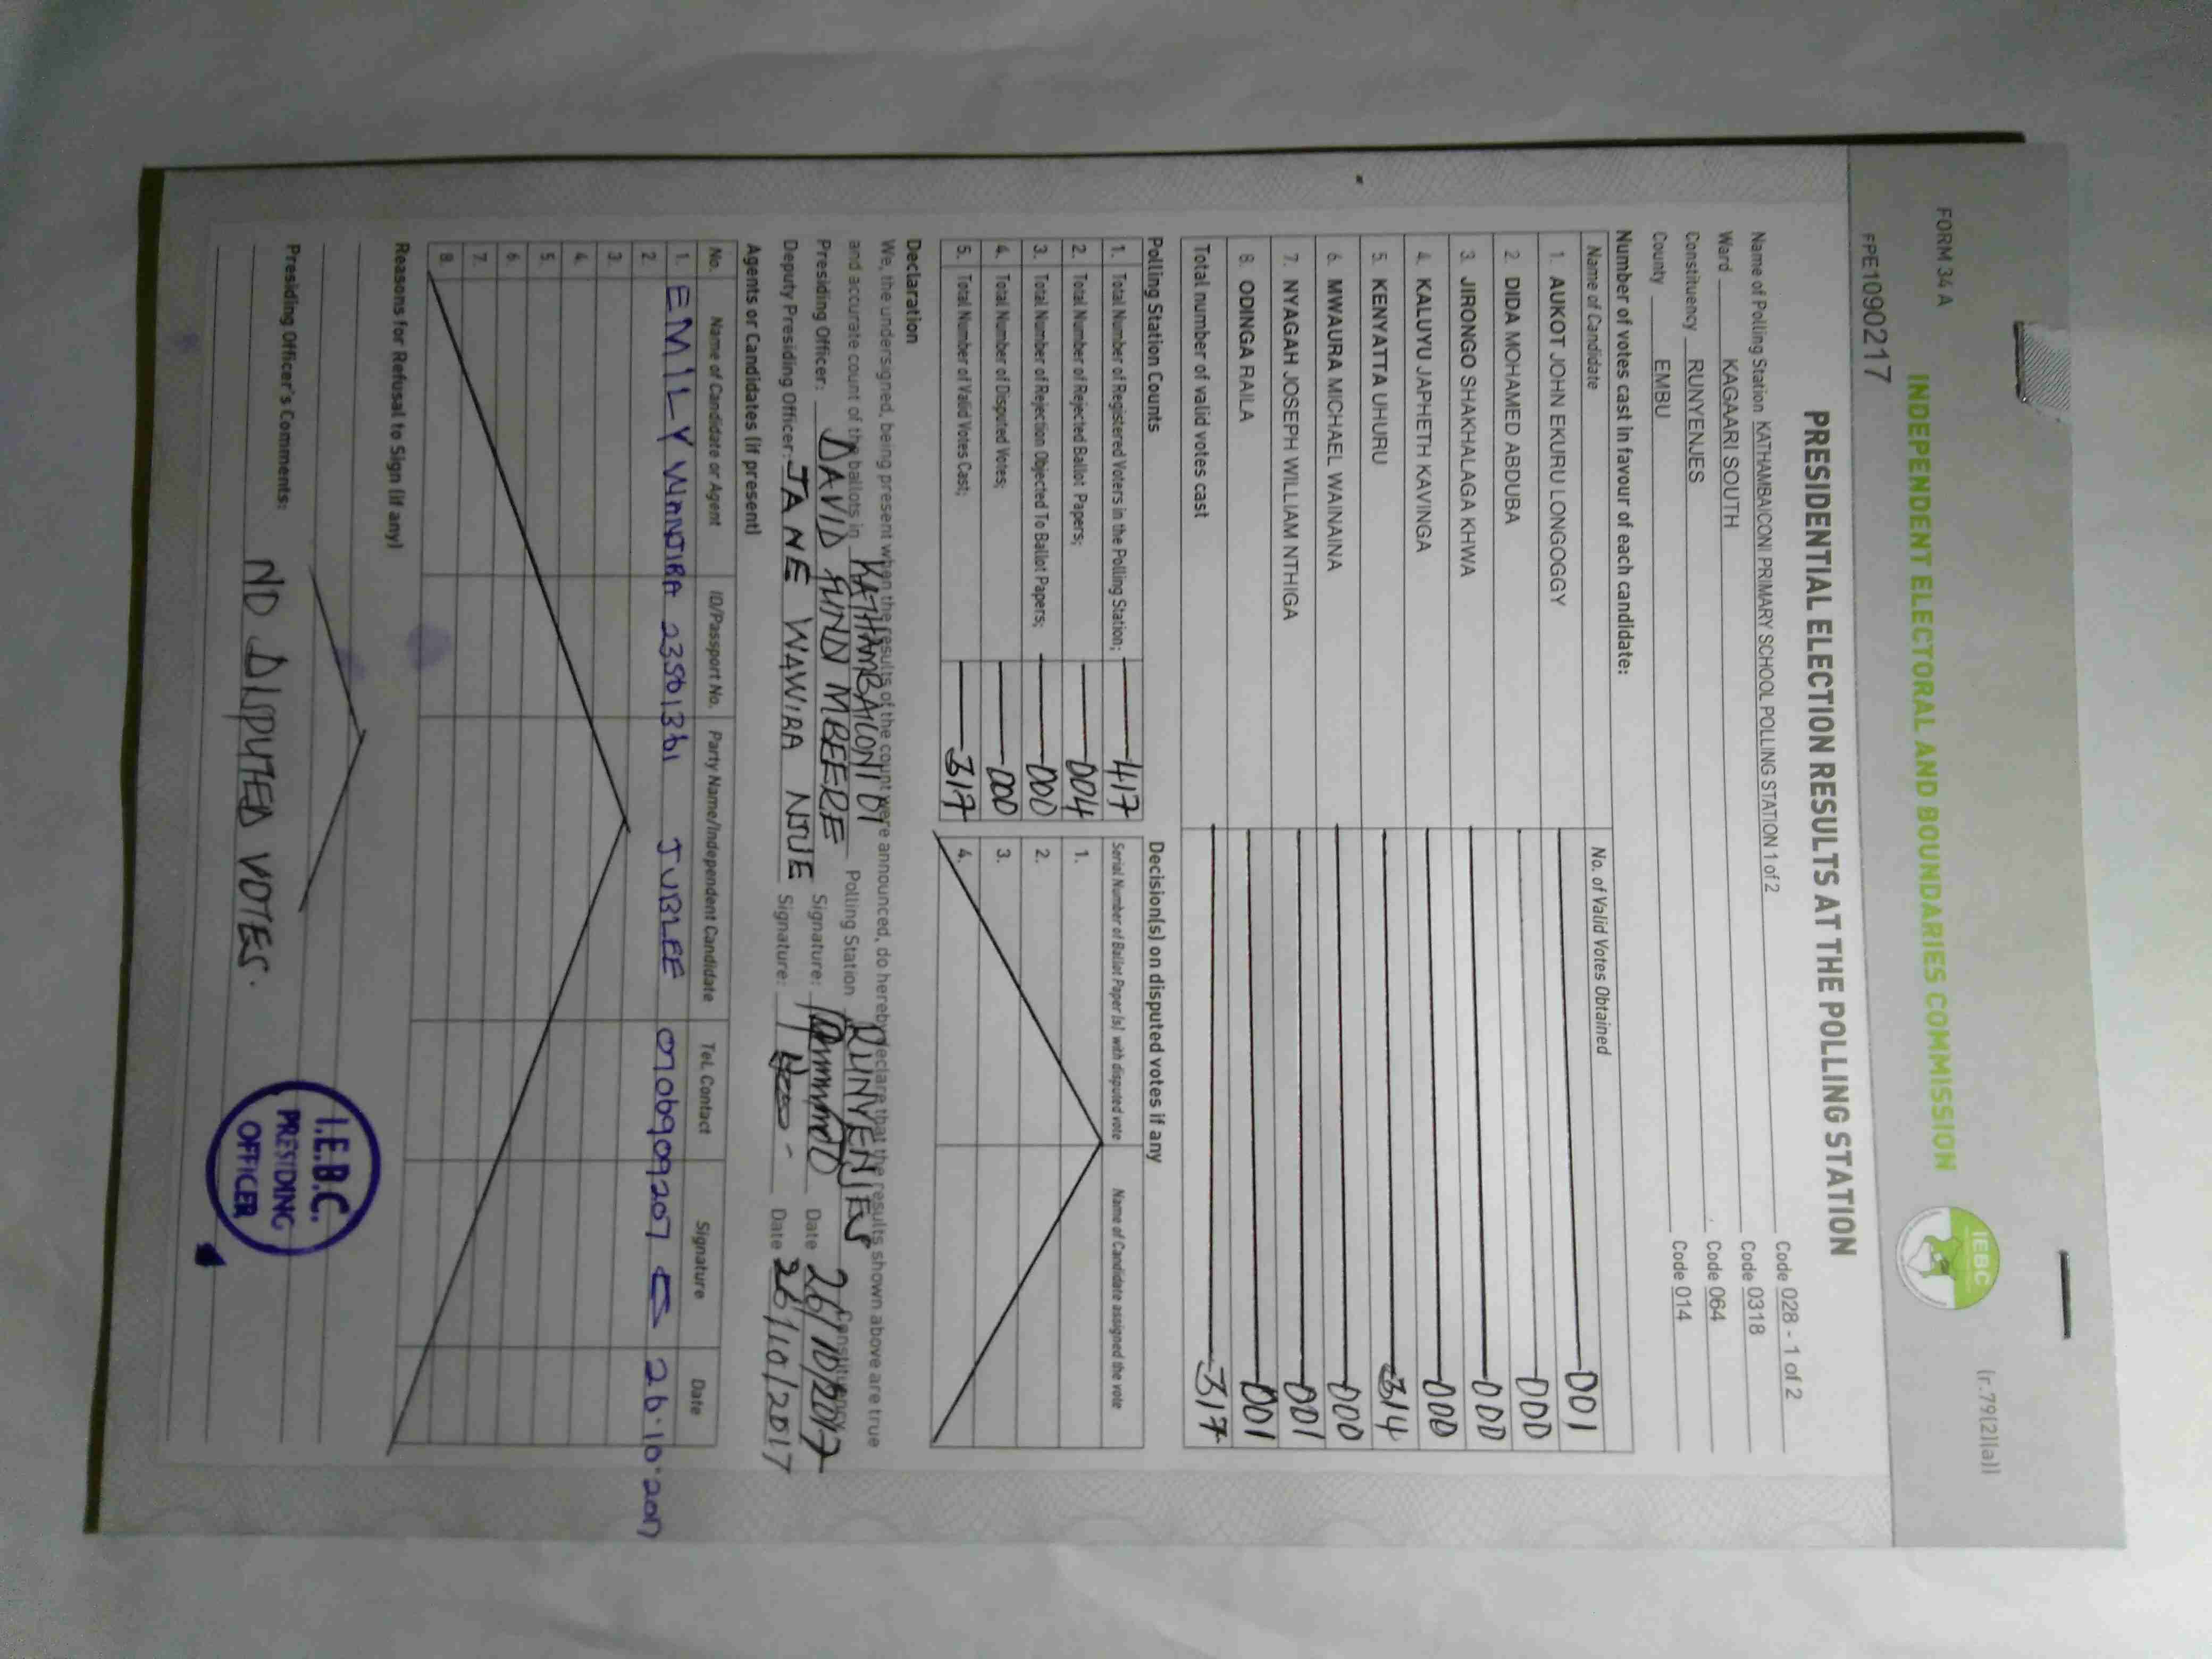 FORM 34 A
(r.79(2)(a))
INDEPENDENT ELECTORAL AND BOUNDARIES COMMISSION
IEBC
FPE1090217
PRESIDENTIAL ELECTION RESULTS AT THE POLLING STATION
Name of Polling Station KATHAMBAICONI PRIMARY SCHOOL POLLING STATION 1 of 2 Code 028 - 1 of 2
Ward KAGAARI SOUTH Code 0318
Constituency RUNYENJES Code 064
County EMBU Code 014
Number of votes cast in favour of each candidate:
Name of Candidate No. of Valid Votes Obtained
1. AUKOT JOHN EKURU LONGOGGY 001
2. DIDA MOHAMED ABDUBA 000
3. JIRONGO SHAKHALAGA KHWA 000
4. KALUYU JAPHETH KAVINGA 000
5. KENYATTA UHURU 314
6. MWAURA MICHAEL WAINAINA 000
7. NYAGAH JOSEPH WILLIAM NTHIGA 001
8. ODINGA RAILA 001
Total number of valid votes cast 317
Polling Station Counts Decision(s) on disputed votes if any
1. Total Number of Registered Voters in the Polling Station; 417 Serial Number of Ballot Paper (s) with disputed vote Name of Candidate assigned the vote
2. Total Number of Rejected Ballot Papers; 004 1.
3. Total Number of Rejection Objected To Ballot Papers; 000 2.
4. Total Number of Disputed Votes; 000 3.
5. Total Number of Valid Votes Cast; 317 4.
Declaration
We, the undersigned, being present when the results of the count were announced, do hereby declare that the results shown above are true
and accurate count of the ballots in KATHAMBAICONI 01 Polling Station RUNYENJES Constituency
Presiding Officer: DAVID MBEERE Signature: Date 26/10/2017
Deputy Presiding Officer: JANE WAWIRA NJUE Signature: Date 26/10/2017
Agents or Candidates (if present)
No. Name of Candidate or Agent ID/Passport No. Party Name/Independent Candidate Tel. Contact Signature Date
1. EMILY 23501361 JUBLEE 0706909207 26.10.2017
2.
3.
4.
5.
6.
7.
8.
Reasons for Refusal to Sign (if any)
Presiding Officer's Comments:
NO DISPUTED VOTES.
I.E.B.C.
PRESIDING
OFFICER